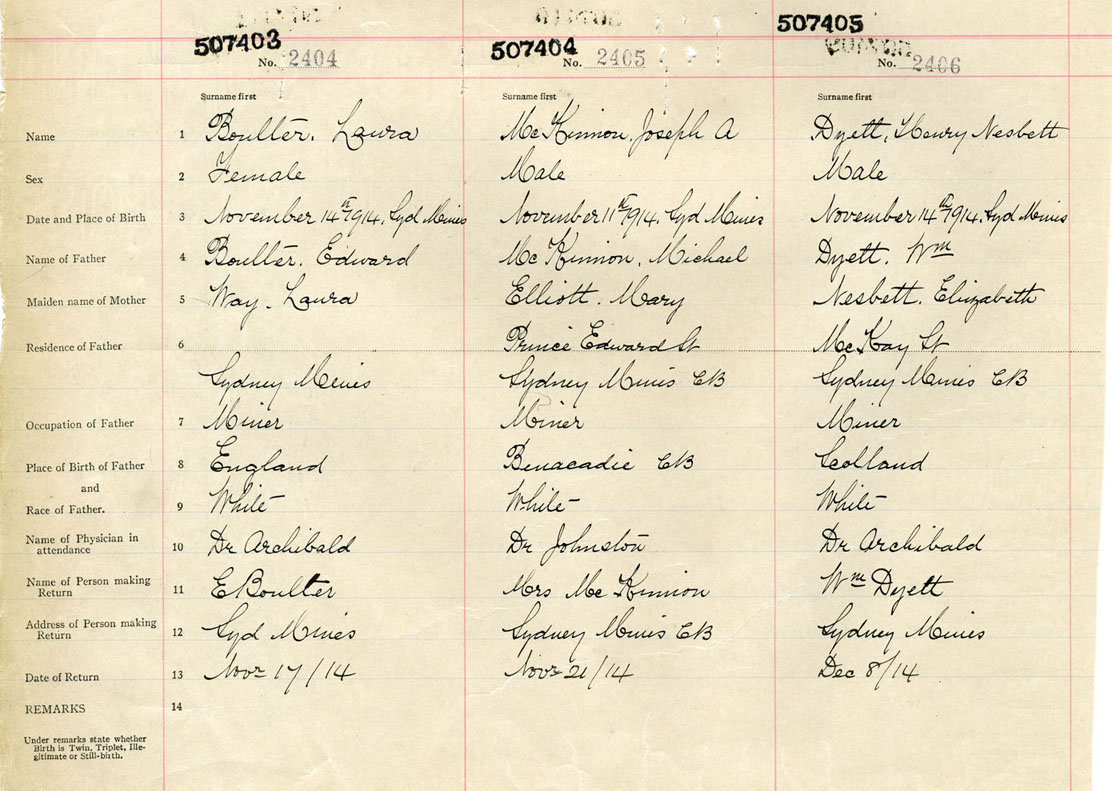 507403 507404 507405
No. 2404 No. 2405 No. 2406
Surname first Surname first Surname first
Name 1 Boulter, Laura McKinnon, Joseph A Dyett, Henry Nesbett
Sex 2 Female Male Male
Date and Place of Birth 3 November 14th 1914, Syd Mines November 11th 1914, Syd Mines November 14th 1914, Syd Mines
Name of Father 4 Boulter, Edward McKinnon, Michael Dyett, Wm
Maiden name of Mother 5 Way, Laura Elliott, Mary Nesbett, Elizabeth
Residence of Father 6 Prince Edward St McKay St
Sydney Mines Sydney Mines CB Sydney Mines CB
Occupation of Father 7 Miner Miner Miner
Place of Birth of Father 8 England Benacadie CB Scotland
and
Race of Father. 9 White White White
Name of Physician in
attendance 10 Dr Archibald Dr Johnston Dr Archibald
Name of Person making
Return 11 E Boulter Mrs McKinnon Wm Dyett
Address of Person making
Return 12 Syd Mines Sydney Mines CB Sydney Mines
Date of Return 13 Novr 17/14 Novr 21/14 Dec 8/14
REMARKS 14
Under remarks state whether
Birth is Twin, Triplet, Ille-
gitimate or Still-birth.